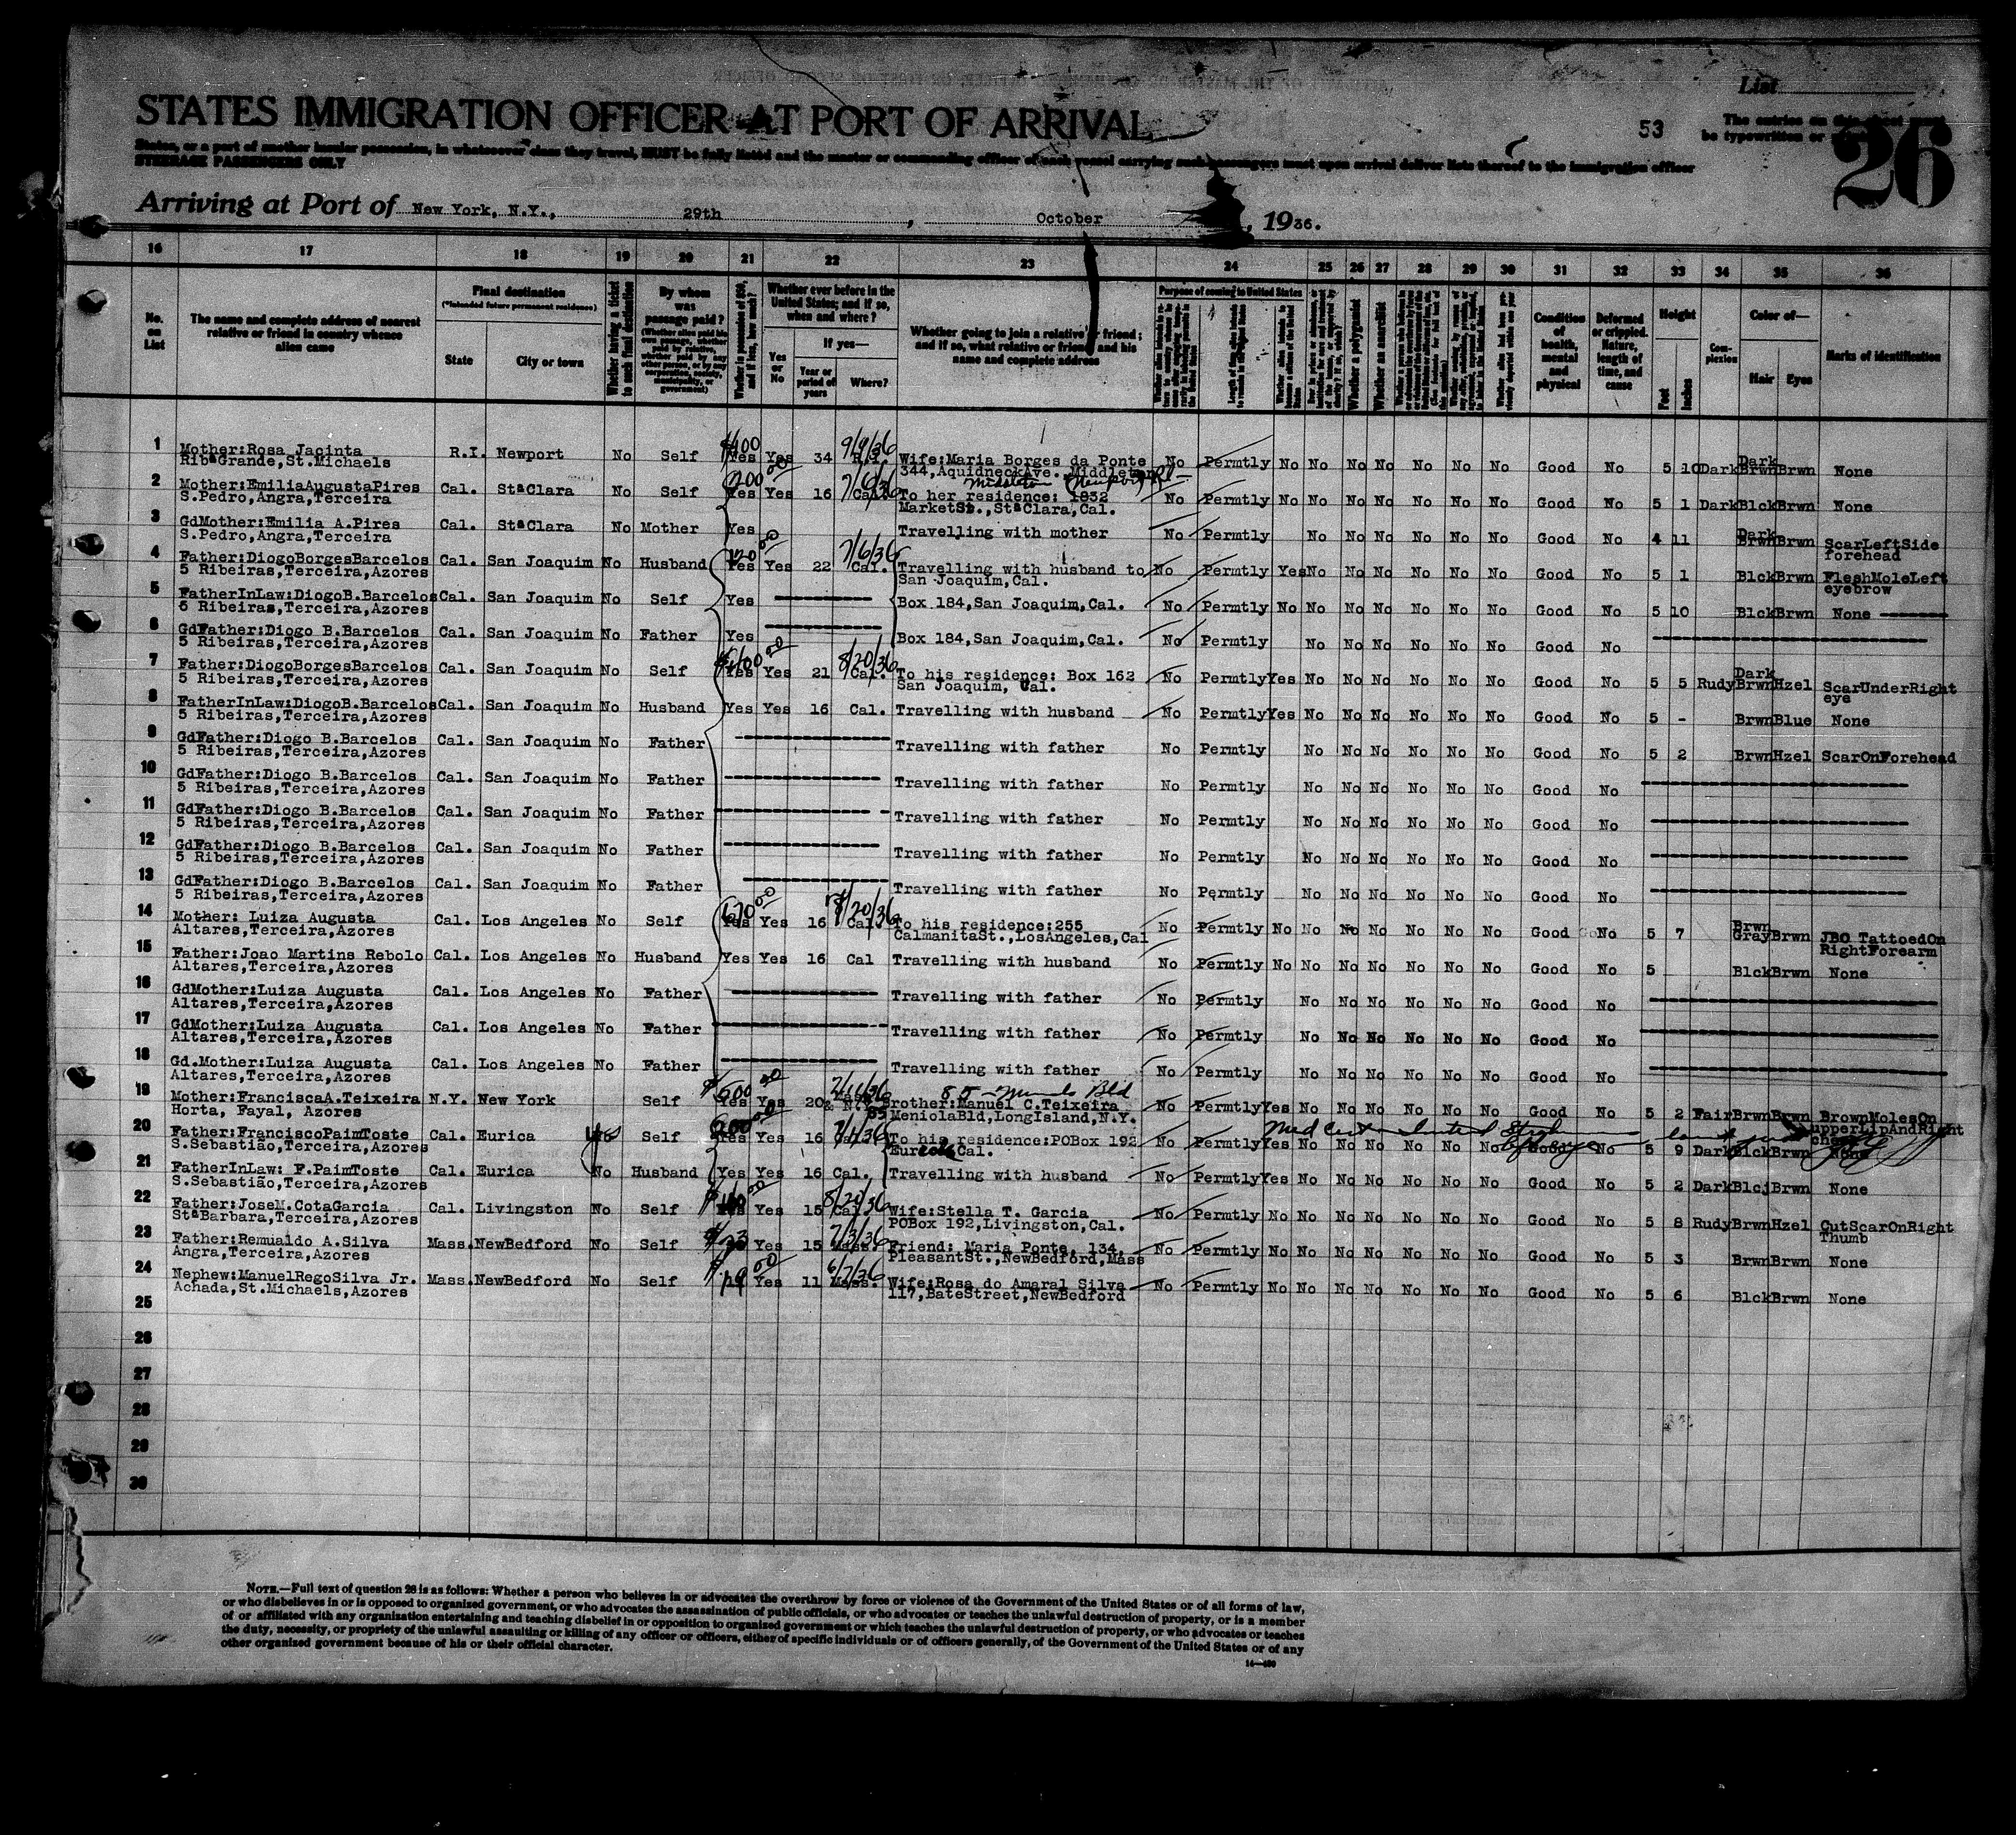 List
STATES IMMIGRATION OFFICER AT PORT OF ARRIVAL
53
The entries on this sheet must
be typewritten or
26
States, or a port of another insular possession, in whatsoever class they travel, MUST be fully listed and the master or commanding officer of each vessel carrying such passengers must upon arrival deliver lists thereof to the immigration officer
STEERAGE PASSENGERS ONLY
Arriving at Port of New York, N.Y., 29th, October, 1936.
16 17 18 19 20 21 22 23 24 25 26 27 28 29 30 31 32 33 34 35 36
No. on List
The name and complete address of nearest relative or friend in country whence alien came
Final destination
(*Intended future permanent residence)
State
City or town
Whether having a ticket to such final destination
By whom was passage paid?
(Whether alien paid his own passage, whether paid by relative, whether paid by any other person, or by any corporation, society, municipality, or government)
Whether in possession of $50, and if less, how much?
Whether ever before in the United States; and if so, when and where?
Yes or No
If yes—
Year or period of years
Where?
Whether going to join a relative or friend; and if so, what relative or friend, and his name and complete address
Purpose of coming to United States
Length of time alien intends to remain in the United States
Whether alien intends to become a citizen of the United States
Whether a polygamist
Whether an anarchist
Condition of health, mental and physical
Deformed or crippled. Nature, length of time, and cause
Height
Feet
Inches
Complexion
Color of—
Hair
Eyes
Marks of identification
1 Mother:Rosa Jacinta R.I. Newport No Self $400 Yes Yes 34 9/9/36 R.I. Wife:Maria Borges da Ponte No Permtly No No No No No No No Good No 5 10 Dark Dark Brwn Brwn None
RibªGrande,St.Michaels 344,AquidneckAve. Middleton
2 Mother:EmiliaAugustaPires Cal. StªClara No Self 200 Yes Yes 16 7/6/36 Cal. To her residence: 1832 No Permtly No No No No No No No Good No 5 1 Dark Blck Brwn None
S.Pedro,Angra,Terceira MarketSt.,StªClara,Cal.
3 GdMother:Emilia A.Pires Cal. StªClara No Mother Yes Travelling with mother No Permtly No No No No No No Good No 4 11 Dark Brwn Brwn ScarLeftSide
S.Pedro,Angra,Terceira forehead
4 Father:DiogoBorgesBarcelos Cal. San Joaquim No Husband 120 Yes Yes 22 7/6/36 Cal. Travelling with husband to No Permtly Yes No No No No No No Good No 5 1 Blck Brwn FleshMoleLeft
5 Ribeiras,Terceira,Azores San Joaquim,Cal. eyebrow
5 FatherInLaw:DiogoB.Barcelos Cal. San Joaquim No Self Yes Box 184,San Joaquim,Cal. No Permtly No No No No No No No Good No 5 10 Blck Brwn None
5 Ribeiras,Terceira,Azores
6 GdFather:Diogo B.Barcelos Cal. San Joaquim No Father Yes Box 184,San Joaquim,Cal. No Permtly No No No No No No Good No
5 Ribeiras,Terceira,Azores
7 Father:DiogoBorgesBarcelos Cal. San Joaquim No Self Yes Yes 21 8/20/36 Cal. To his residence: Box 162 No Permtly Yes No No No No No No Good No 5 5 Rudy Dark Brwn Hzel ScarUnderRight
5 Ribeiras,Terceira,Azores San Joaquim, Cal. eye
8 FatherInLaw:DiogoB.Barcelos Cal. San Joaquim No Husband Yes Yes 16 Cal. Travelling with husband No Permtly Yes No No No No No No Good No 5 - Brwn Blue None
5 Ribeiras,Terceira,Azores
9 GdFather:Diogo B.Barcelos Cal. San Joaquim No Father Travelling with father No Permtly No No No No No No Good No 5 2 Brwn Hzel ScarOnForehead
5 Ribeiras,Terceira,Azores
10 GdFather:Diogo B.Barcelos Cal. San Joaquim No Father Travelling with father No Permtly No No No No No No Good No
5 Ribeiras,Terceira,Azores
11 GdFather:Diogo B.Barcelos Cal. San Joaquim No Father Travelling with father No Permtly No No No No No No Good No
5 Ribeiras,Terceira,Azores
12 GdFather:Diogo B.Barcelos Cal. San Joaquim No Father Travelling with father No Permtly No No No No No No Good No
5 Ribeiras,Terceira,Azores
13 GdFather:Diogo B.Barcelos Cal. San Joaquim No Father Travelling with father No Permtly No No No No No No Good No
5 Ribeiras,Terceira,Azores
14 Mother: Luiza Augusta Cal. Los Angeles No Self 670 Yes Yes 16 8/20/36 Cal. To his residence:255 No Permtly No No No No No No No Good No 5 7 Brwn Gray Brwn JBO TattoedOn
Altares,Terceira,Azores CalmanitaSt.,LosAngeles,Cal RightForearm
15 Father:Joao Martins Rebolo Cal. Los Angeles No Husband Yes Yes 16 Cal Travelling with husband No Permtly No No No No No No No Good No 5 Blck Brwn None
Altares,Terceira,Azores
16 GdMother:Luiza Augusta Cal. Los Angeles No Father Travelling with father No Permtly No No No No No No Good No
Altares,Terceira,Azores
17 GdMother:Luiza Augusta Cal. Los Angeles No Father Travelling with father No Permtly No No No No No No Good No
Altares,Terceira,Azores
18 Gd.Mother:Luiza Augusta Cal. Los Angeles No Father Travelling with father No Permtly No No No No No No Good No
Altares,Terceira,Azores
19 Mother:FranciscaA.Teixeira N.Y. New York Self $500 Yes Yes 20 7/11/36 Brother:Manuel C.Teixeira No Permtly Yes No No No No No No Good No 5 2 Fair Brwn Brwn BrownMolesOn
Horta, Fayal, Azores 85 MeniolaBld,LongIsland,N.Y. upperLipAndRight
20 Father:FranciscoPaimToste Cal. Eurica Self 200 Yes Yes 16 To his residence:POBox 192 No Permtly Yes No No No No No No Good No 5 9 Dark Blck Brwn None
S.Sebastião,Terceira,Azores Cal.
21 FatherInLaw: F.PaimToste Cal. Eurica No Husband Yes Yes 16 Cal. Travelling with husband No Permtly Yes No No No No No No Good No 5 2 Dark Blcj Brwn None
S.Sebastião,Terceira,Azores
22 Father:JoseM.CotaGarcia Cal. Livingston No Self Yes 15 8/20/36 Cal. Wife:Stella T. Garcia No Permtly No No No No No No No Good No 5 8 Rudy Brwn Hzel CutScarOnRight
StªBarbara,Terceira,Azores POBox 192,Livingston,Cal. Thumb
23 Father:Remualdo A.Silva Mass. NewBedford No Self Yes 15 7/3/36 Mass. Friend: Maria Ponte, 134, No Permtly No No No No No No No Good No 5 3 Brwn Brwn None
Angra,Terceira,Azores PleasantSt.,NewBedford,Mass
24 Nephew:ManuelRegoSilva Jr. Mass. NewBedford No Self Yes 11 6/7/36 Mass. Wife:Rosa do Amaral Silva No Permtly No No No No No No No Good No 5 6 Blck Brwn None
Achada,St.Michaels,Azores 117,BateStreet,NewBedford
25
26
27
28
29
30
NOTE.—Full text of question 28 is as follows: Whether a person who believes in or advocates the overthrow by force or violence of the Government of the United States or of all forms of law,
or who disbelieves in or is opposed to organized government, or who advocates the assassination of public officials, or who advocates or teaches the unlawful destruction of property, or is a member
of or affiliated with any organization entertaining and teaching disbelief in or opposition to organized government or which teaches the unlawful destruction of property, or who advocates or teaches
the duty, necessity, or propriety of the unlawful assaulting or killing of any officer or officers, either of specific individuals or of officers generally, of the Government of the United States or of any
other organized government because of his or their official character.